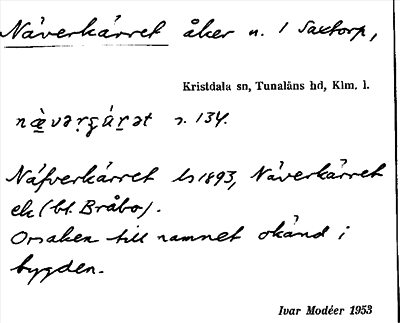 Näverkärret åker n. 1 Saxtorp,
Kristdala sn, Tunaläns hd, Klm. l.
s. 134.
Näfverkärret ls 1893, Näverkärret
ek (bl. Bråbo).
Orsaken till namnet okänd i
bygden.
Ivar Modéer 1953